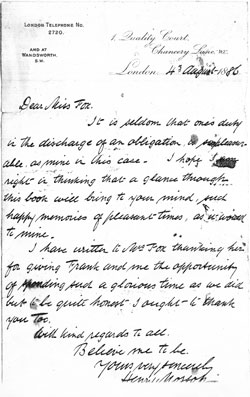 LONDON TELEPHONE NO.
2720.
AND AT
WANDSWORTH.
S.W.
1, Quality Court,
Chancery Lane, W.C.
London, 4th August 18
Dear Miss Fox.
It is seldom that one's duty
in the discharge of an obligation, is so pleasur-
able, as mine in this case. I hope I
right in thinking that a glance through
this book will bring to your mind, such
happy memories of pleasant times, as it would
to mine.
I have written to Mrs Fox thanking her
for giving Frank and me the opportunity
of spending such a glorious time as we did
but to be quite honest I ought to thank
you too.
With kind regards to all.
Believe me to be.
Yours very sincerely